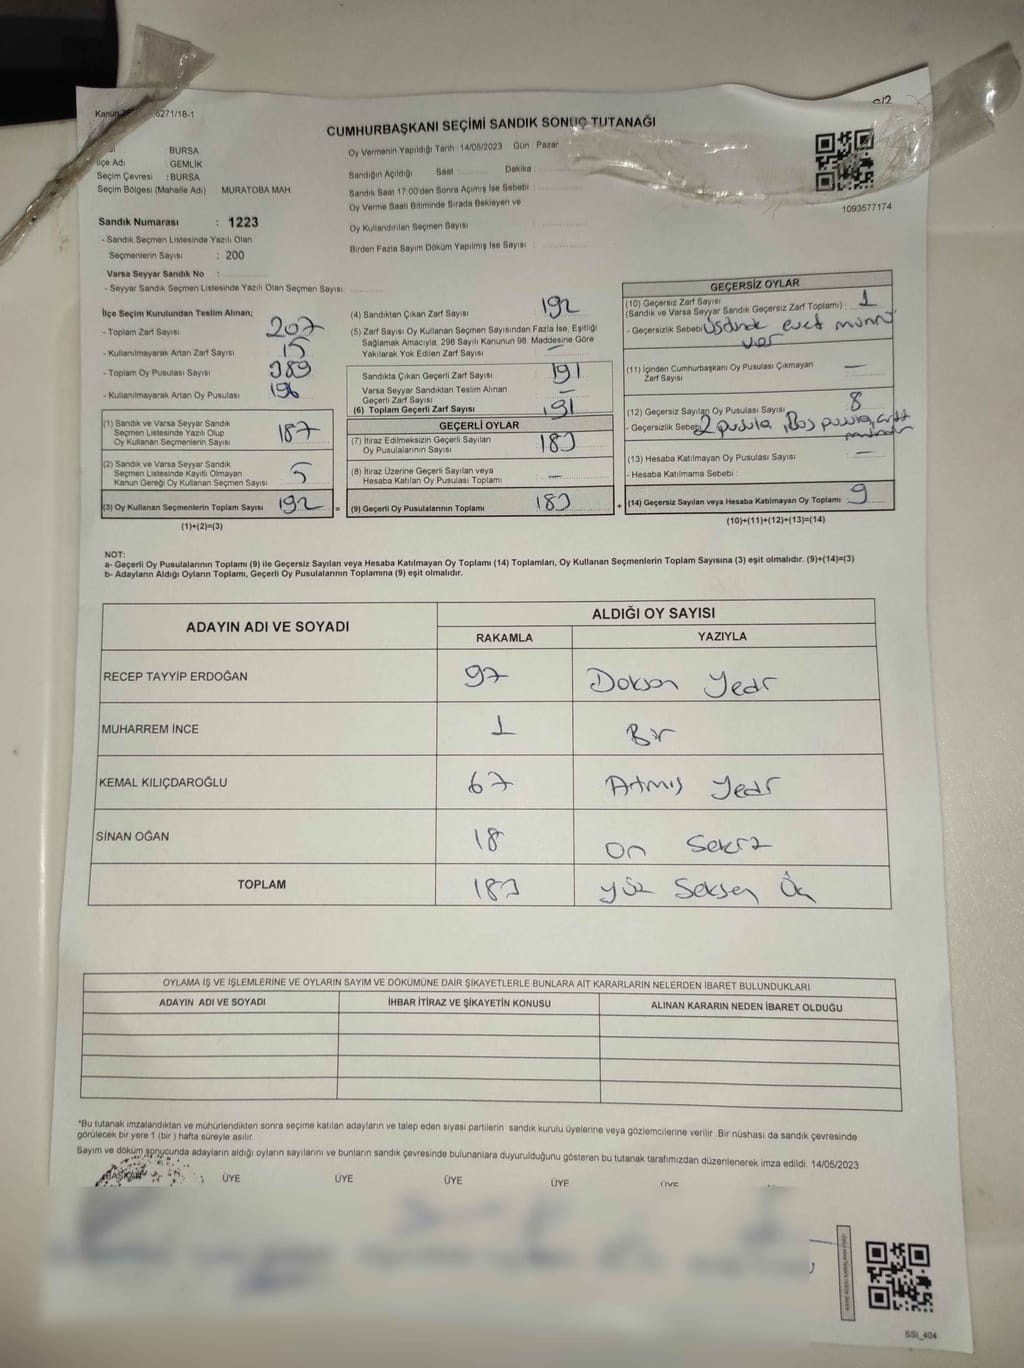 6271/18-1
CUMHURBAŞKANI SEÇİMİ SANDIK SONUÇ TUTANAĞI
1093577174
BURSA
İlçe Adı GEMLİK
Seçim Çevresi : BURSA
Seçim Bölgesi (Mahalle Adı) : MURATOBA MAH.
Sandık Numarası : 1223
- Sandık Seçmen Listesinde Yazılı Olan
Seçmenlerin Sayısı : 200
Varsa Seyyar Sandık No :
- Seyyar Sandık Seçmen Listesinde Yazılı Olan Seçmen Sayısı:
Oy Vermenin Yapıldığı Tarih : 14/05/2023 Gün Pazar
Sandığın Açıldığı Saat Dakika
Sandık Saat 17.00'den Sonra Açımış İse Sebebi
Oy Verme Saati Bitiminde Sırada Bekleyen ve
Oy Kullandırılan Seçmen Sayısı
Birden Fazla Sayım Döküm Yapılmış İse Sayısı
İlçe Seçim Kurulundan Teslim Alınan;
- Toplam Zarf Sayısı 207
- Kullanılmayarak Artan Zarf Sayısı 15
- Toplam Oy Pusulası Sayısı 389
- Kullanılmayarak Artan Oy Pusulası 196
(1) Sandık ve Varsa Seyyar Sandık
Seçmen Listesinde Yazılı Olup
Oy Kullanan Seçmenlerin Sayısı 187
(2) Sandık ve Varsa Seyyar Sandık
Seçmen Listesinde Kayıtlı Olmayan
Kanun Gereği Oy Kullanan Seçmen Sayısı 5
(3) Oy Kullanan Seçmenlerin Toplam Sayısı 192 =
(1)+(2)=(3)
(4) Sandıktan Çıkan Zarf Sayısı 192
(5) Zarf Sayısı Oy Kullanan Seçmen Sayısından Fazla İse, Eşitliği
Sağlamak Amacıyla; 298 Sayılı Kanunun 98. Maddesine Göre
Yakılarak Yok Edilen Zarf Sayısı –
Sandıkta Çıkan Geçerli Zarf Sayısı 191
Varsa Seyyar Sandıktan Teslim Alınan
Geçerli Zarf Sayısı –
(6) Toplam Geçerli Zarf Sayısı 191
GEÇERLİ OYLAR
(7) İtiraz Edilmeksizin Geçerli Sayılan
Oy Pusulalarının Sayısı 183
(8) İtiraz Üzerine Geçerli Sayılan veya
Hesaba Katılan Oy Pusulası Toplamı –
(9) Geçerli Oy Pusulalarının Toplamı 183 +
GEÇERSİZ OYLAR
(10) Geçersiz Zarf Sayısı
(Sandık ve Varsa Seyyar Sandık Geçersiz Zarf Toplamı) : 1
- Geçersizlik Sebebi Üstünde evet mührü
var
(11) İçinden Cumhurbaşkanı Oy Pusulası Çıkmayan
Zarf Sayısı –
(12) Geçersiz Sayılan Oy Pusulası Sayısı 8
- Geçersizlik Sebebi 2 pusula, Boş pusula,
(13) Hesaba Katılmayan Oy Pusulası Sayısı –
- Hesaba Katılmama Sebebi :
(14) Geçersiz Sayılan veya Hesaba Katılmayan Oy Toplamı 9
(10)+(11)+(12)+(13)=(14)
NOT:
a- Geçerli Oy Pusulalarının Toplamı (9) ile Geçersiz Sayılan veya Hesaba Katılmayan Oy Toplamı (14) Toplamları, Oy Kullanan Seçmenlerin Toplam Sayısına (3) eşit olmalıdır. (9)+(14)=(3)
b- Adayların Aldığı Oyların Toplamı, Geçerli Oy Pusulalarının Toplamına (9) eşit olmalıdır.
ADAYIN ADI VE SOYADI ALDIĞI OY SAYISI
RAKAMLA YAZIYLA
RECEP TAYYİP ERDOĞAN 97 Doksan Yedi
MUHARREM İNCE 1 Bir
KEMAL KILIÇDAROĞLU 67 Atmış Yedi
SİNAN OĞAN 18 On Sekiz
TOPLAM 183 Yüz Seksen Üç
OYLAMA İŞ VE İŞLEMLERİNE VE OYLARIN SAYIM VE DÖKÜMÜNE DAİR ŞİKAYETLERLE BUNLARA AİT KARARLARIN NELERDEN İBARET BULUNDUKLARI
ADAYIN ADI VE SOYADI İHBAR İTİRAZ VE ŞİKAYETİN KONUSU ALINAN KARARIN NEDEN İBARET OLDUĞU
*Bu tutanak imzalandıktan ve mühürlendikten sonra seçime katılan adayların ve talep eden siyasi partilerin sandık kurulu üyelerine veya gözlemcilerine verilir. Bir nüshası da sandık çevresinde
görülecek bir yere 1 (bir) hafta süreyle asılır.
Sayım ve döküm sonucunda adayların aldığı oyların sayılarını ve bunların sandık çevresinde bulunanlara duyurulduğunu gösteren bu tutanak tarafımızdan düzenlenerek imza edildi. 14/05/2023
BAŞKAN ÜYE ÜYE ÜYE ÜYE ÜYE
SSI_404